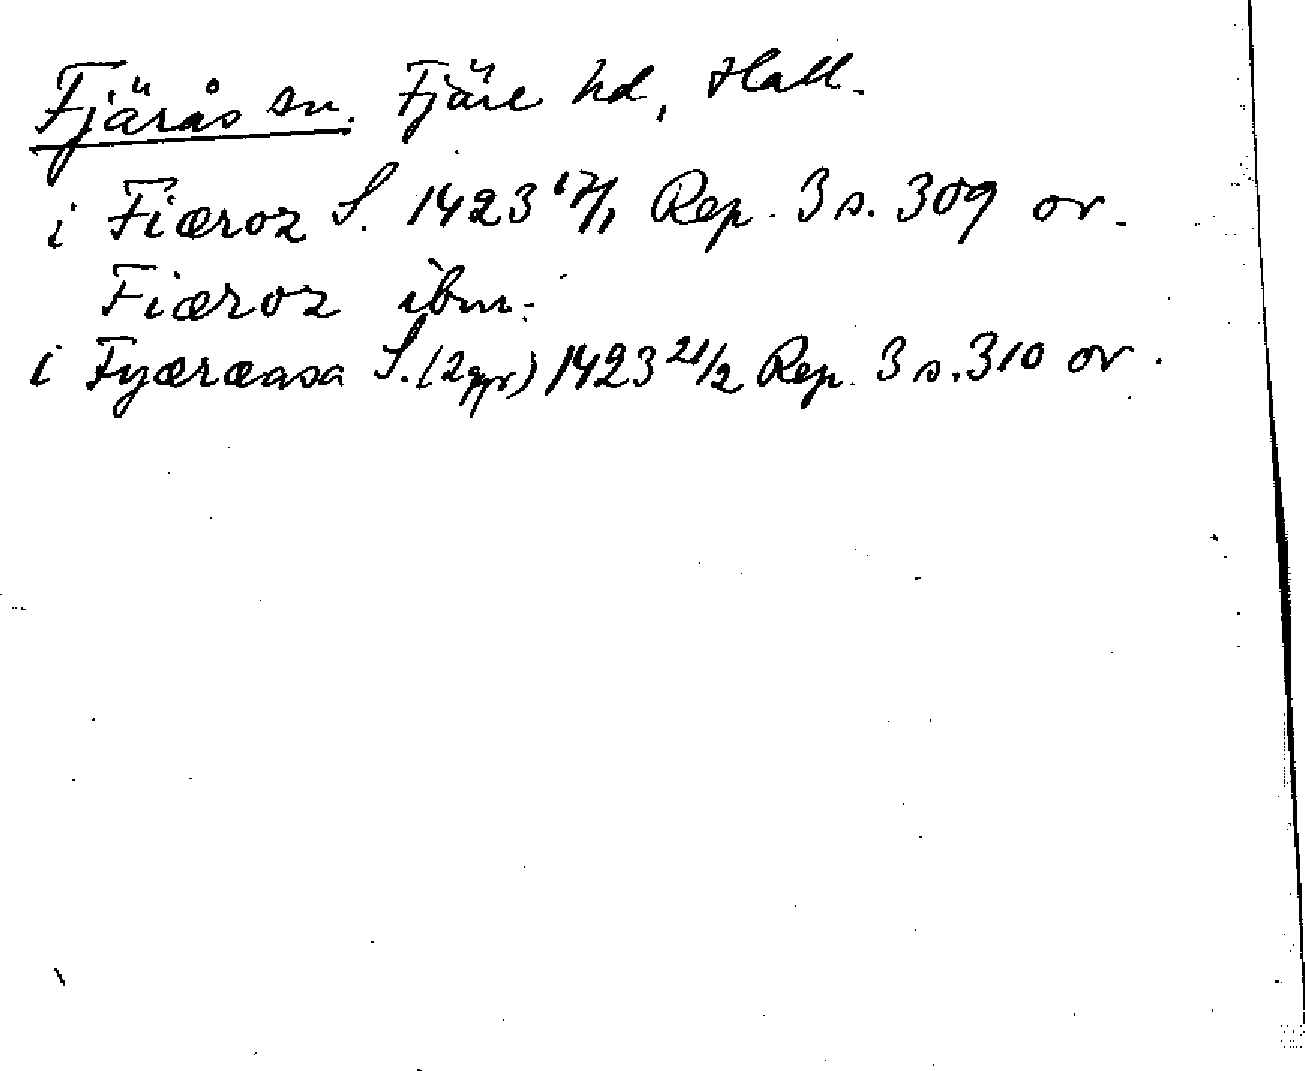 Fjärås sn. Fjäre hd, Hall.
i Fiæroz S. 1423 17/1 Rep. 3 s. 309 or.
Fiæroz ibm.
i Fyæræasa S. (2 ggr) 1423 21/2 Rep. 3 s. 310 or.